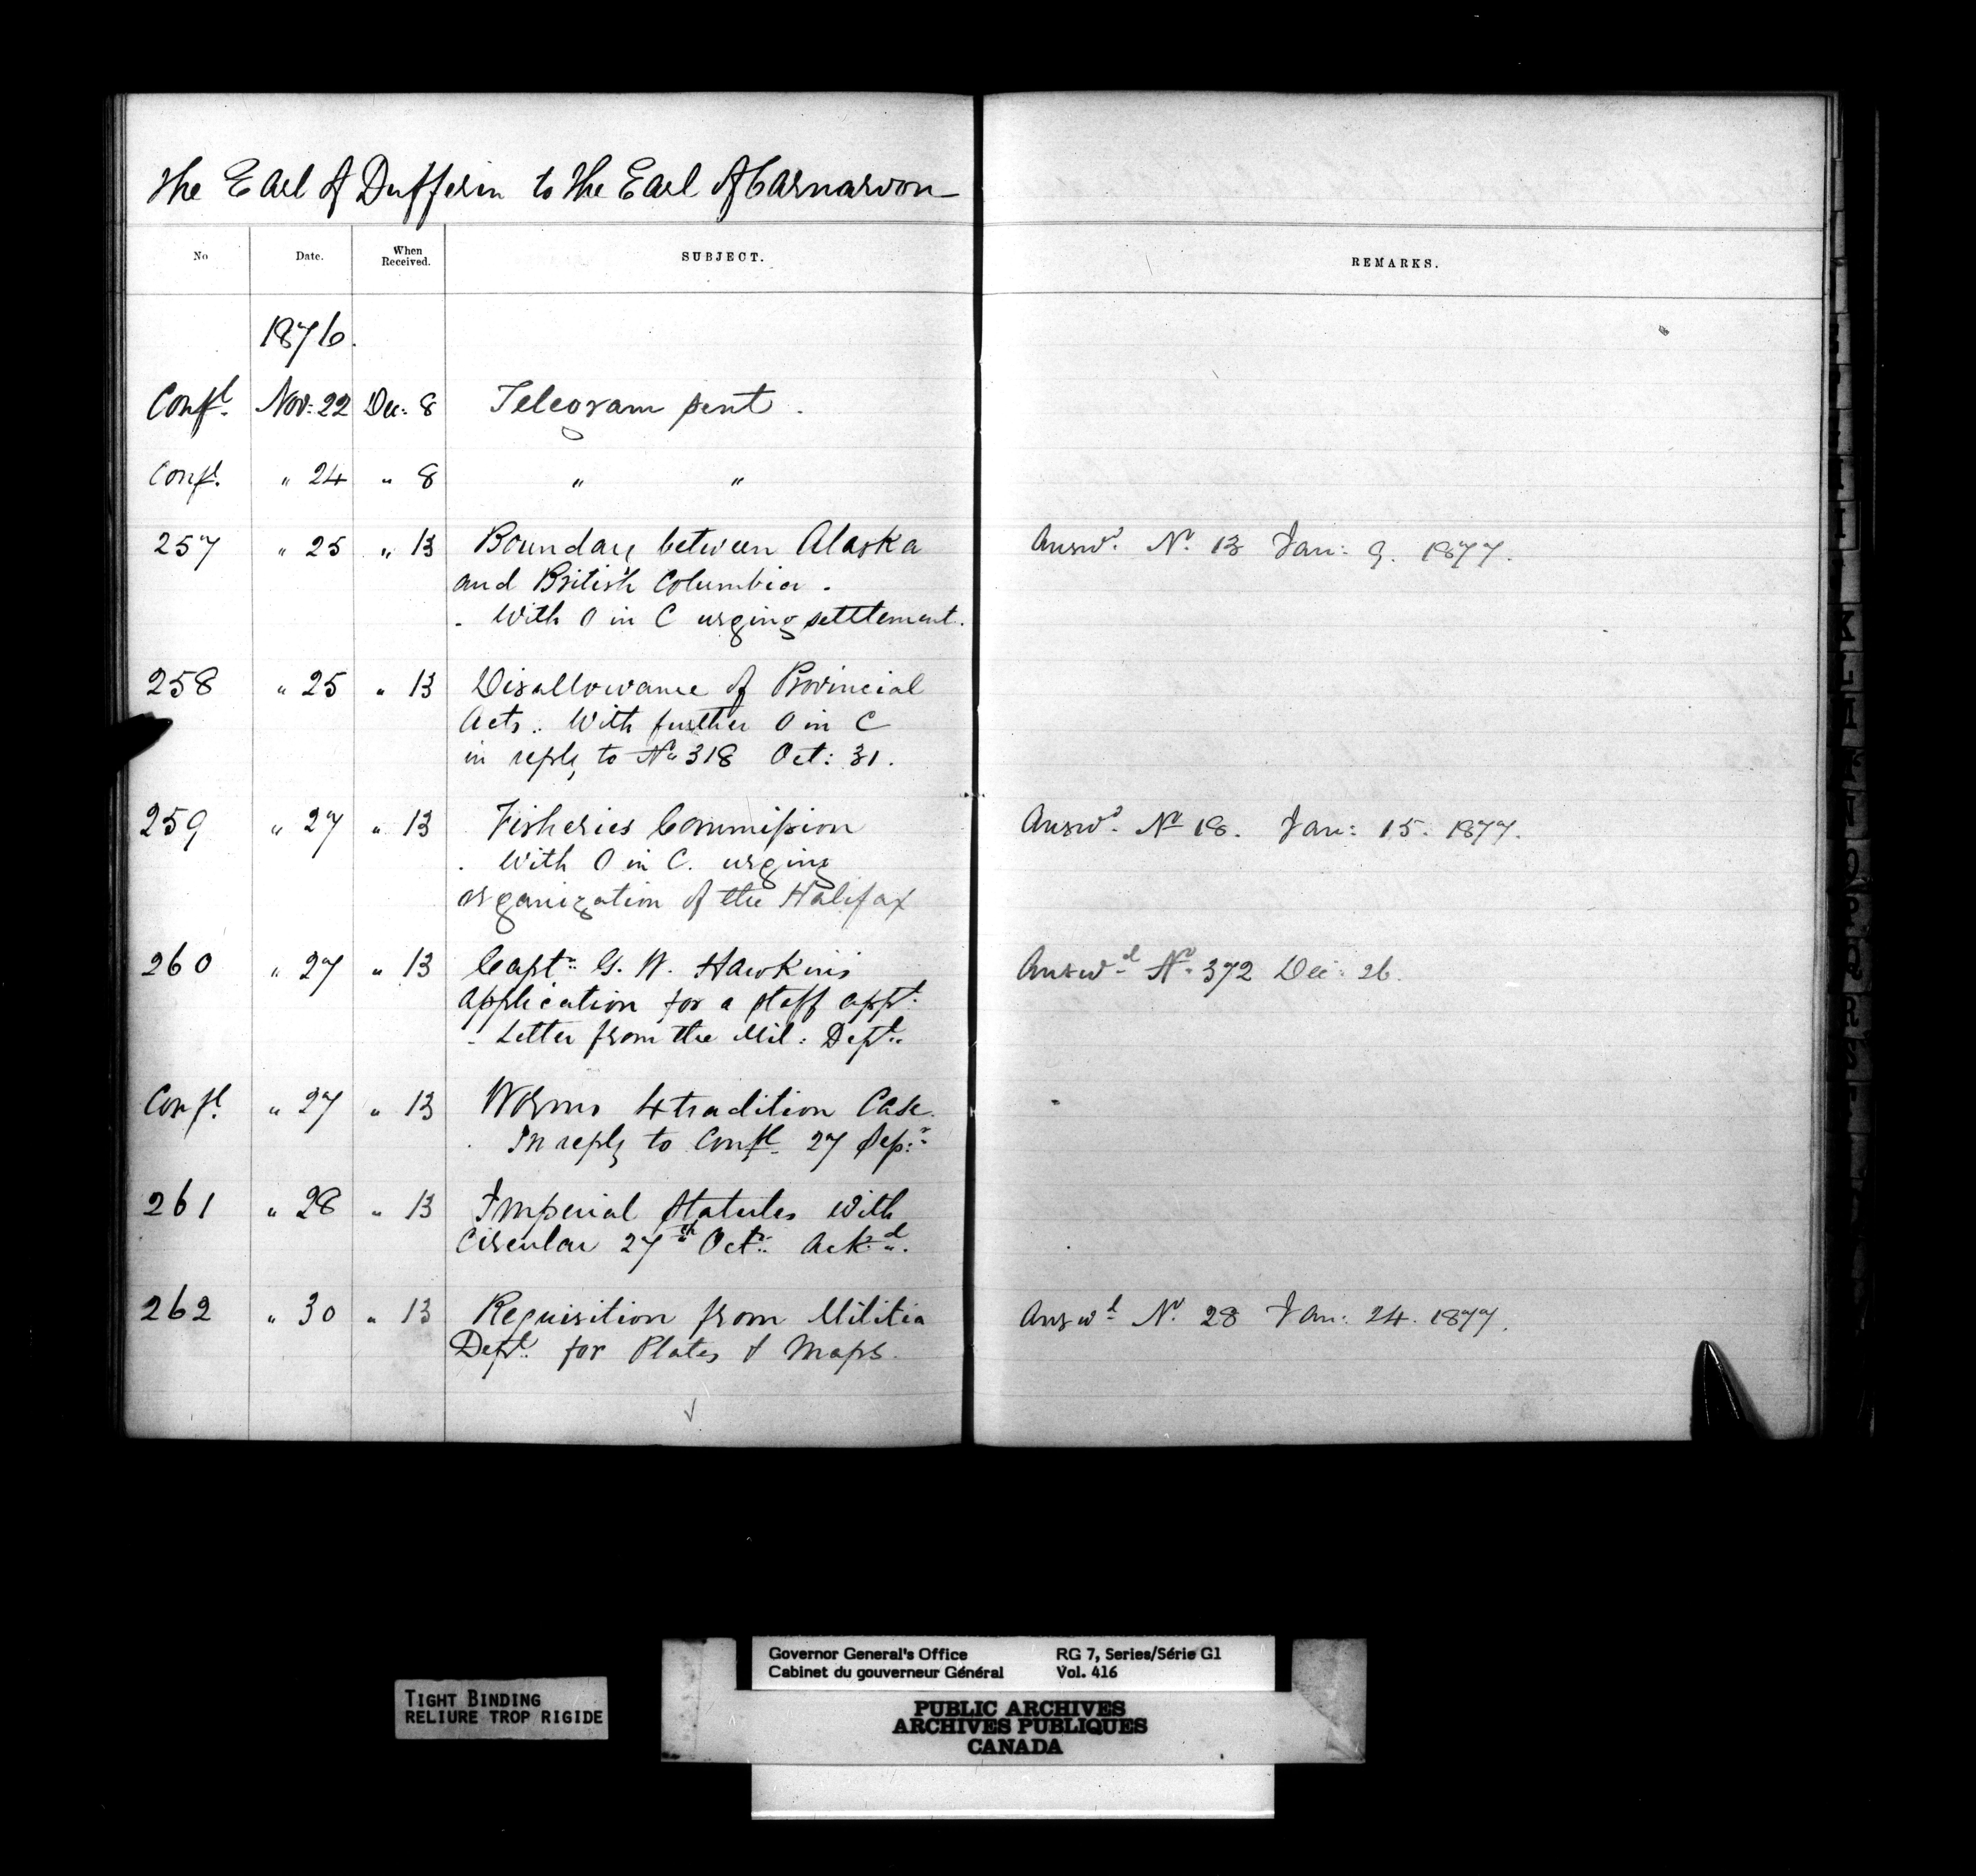 The Earl of Dufferin to the Earl of Carnarvon
No Date. When Received. SUBJECT. REMARKS.
1876.
Confl. Nov: 22 Dec: 8 Telegram sent.
Confl. " 24 " 8 " "
257 " 25 " 13 Boundary between Alaska Answd. No. 13 Jan: 9. 1877.
and British Columbia.
. With O in C urging settlement.
258 " 25 " 13 Disallowance of Provincial
Acts. With further O in C
in reply to No 318 Oct: 31.
259 " 27 " 13 Fisheries Commission Answd. No 18. Jan: 15. 1877.
. With O in C. urging
organization of the Halifax
260 " 27 " 13 Captn. G. W. Hawkins Answd. No. 372 Dec: 26.
application for a staff appt.
- Letter from the Mil: Dept.
Confl. " 27 " 13 Worms Xtradition Case.
. In reply to Confl. 27 Sepr.
261 " 28 " 13 Imperial Statutes with
Circular 27th Octr. Ackd.
262 " 30 " 13 Requisition from Militia Answd. No. 28 Jan: 24. 1877.
Dept. for Plates & Maps.
TIGHT BINDING
RELIURE TROP RIGIDE
Governor General's Office RG 7, Series/Série G1
Cabinet du gouverneur Général Vol. 416
PUBLIC ARCHIVES
ARCHIVES PUBLIQUES
CANADA